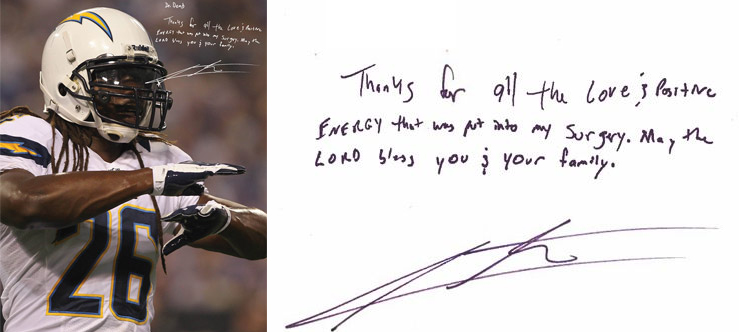 Riddell
Thanks for all the Love & Positive
ENERGY that was put into my Surgery. May the
LORD bless you & your family.
26
Thanks for all the Love & Positive
ENERGY that was put into my Surgery. May the
LORD bless you & your family.